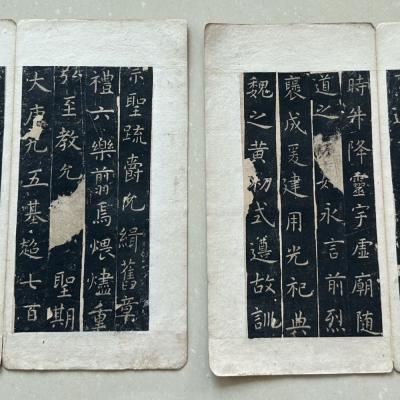 時升降靈宇虛廟隨
道之永言前烈
襃成爰建用光祀典
魏之黄初式遵故訓
宗聖疏爵允緝舊章
禮六樂翦焉煨燼重
弘至教允聖期
大唐九五基超七百